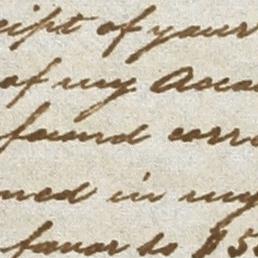 eipt of your
of my Acco
found corre
ned in my
favor to $5